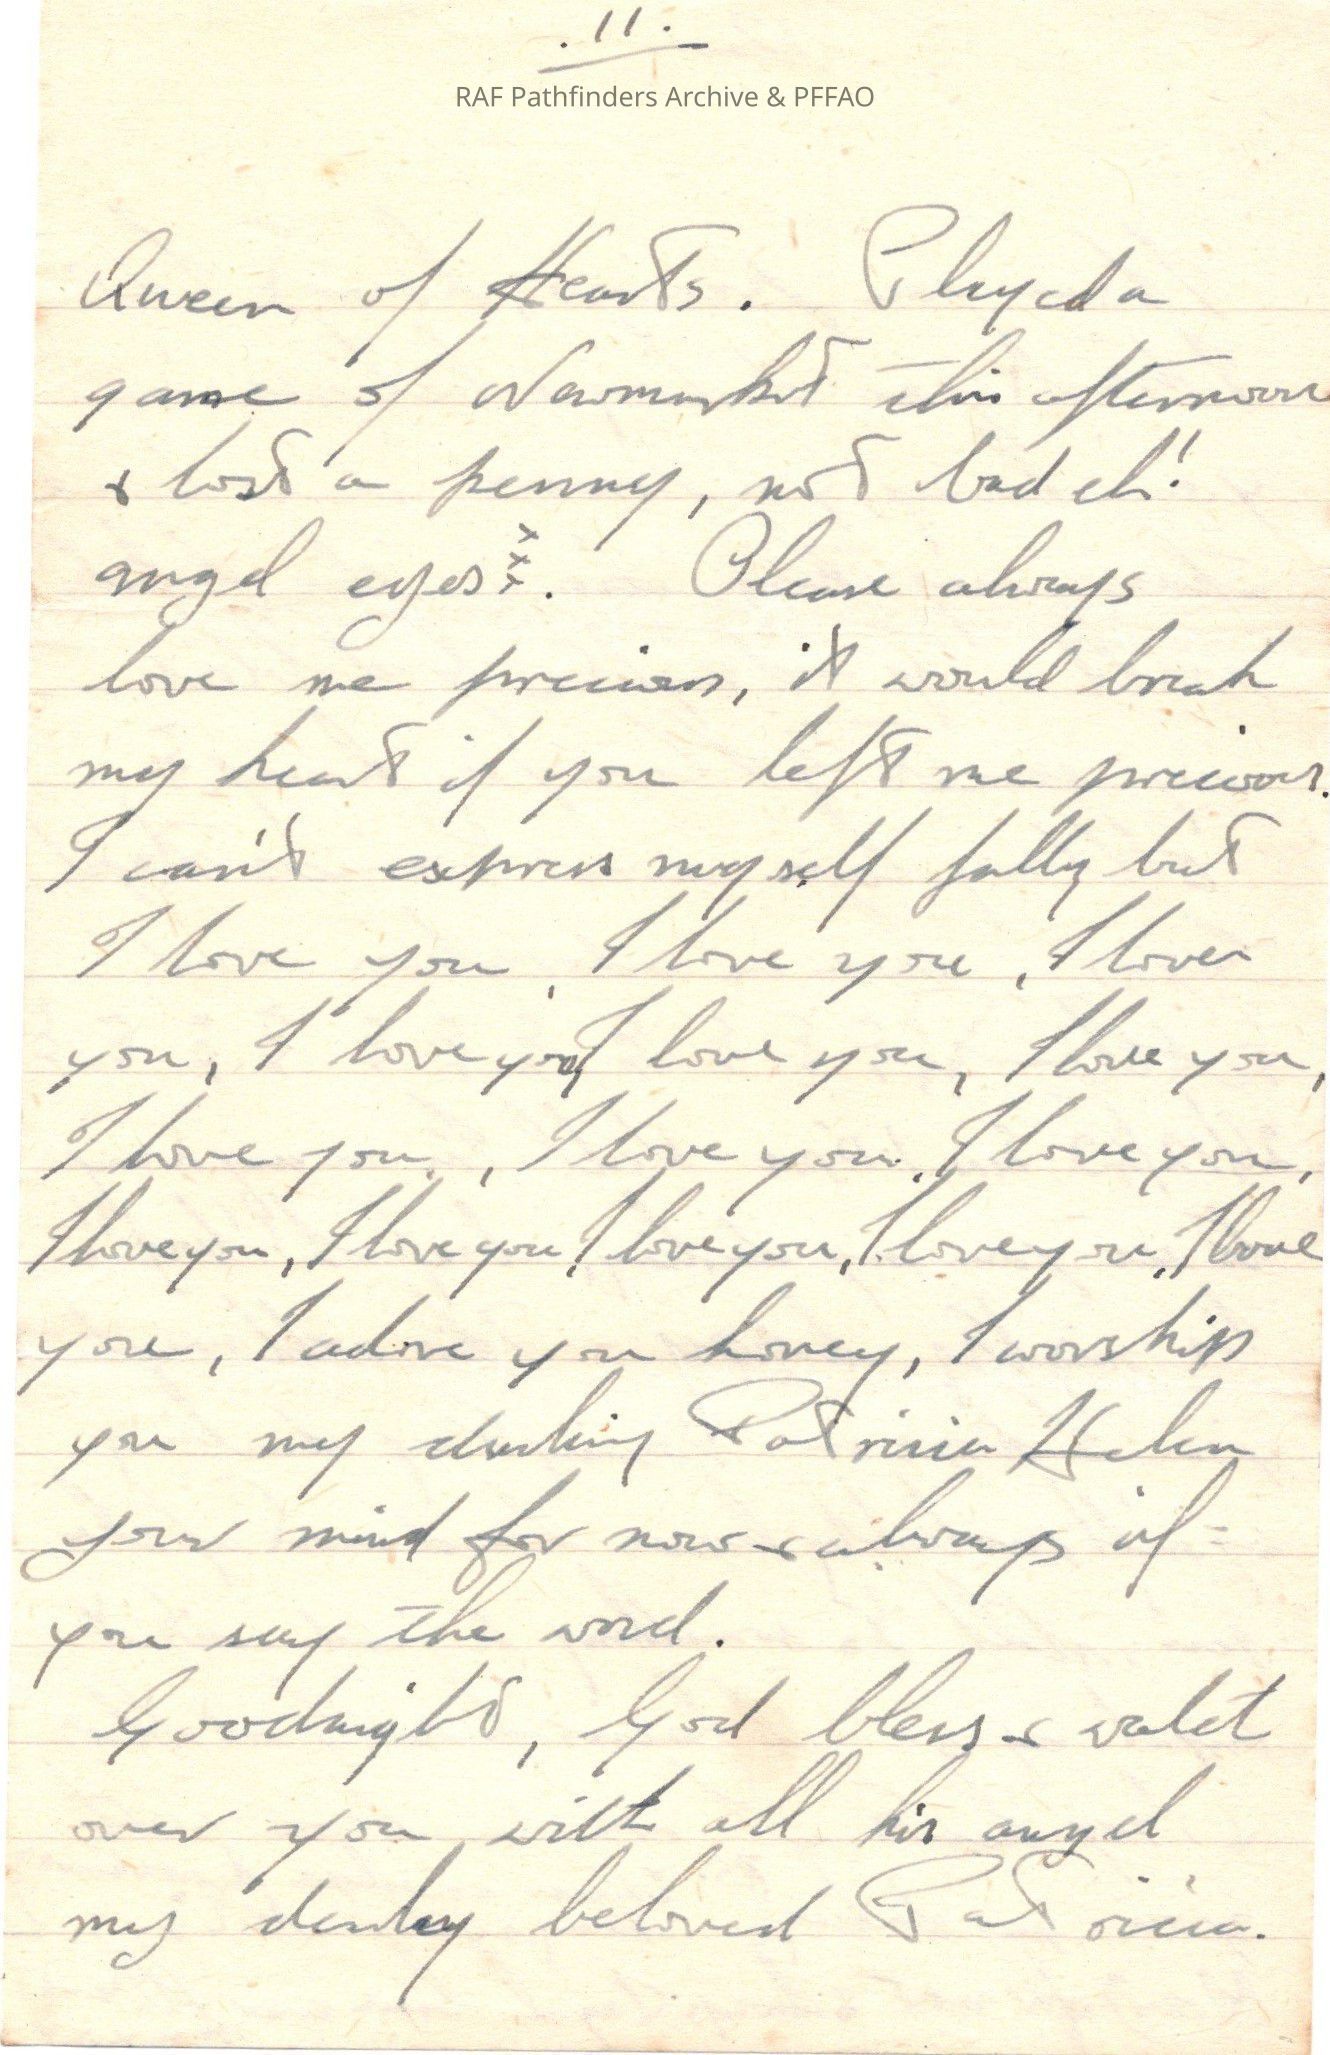 .11.
RAF Pathfinders Archive & PFFAO
Queen of Hearts. Played a
game of Newmarket this afternoon
& lost a penny, not bad eh!
angel eyes xxx. Please always
love me precious, it would break
my heart if you left me precious.
I can't express myself fully but
I love you, I love you, I love
you, I love you, I love you, I love you,
I love you, I love you, I love you,
I love you, I love you, I love you, I love you, I love
you, I adore you honey, I worship
you my darling Patricia Helen
your mind for now & always if
you say the word.
Goodnight, God bless & watch
over you with all his angel
my darling beloved Patricia.